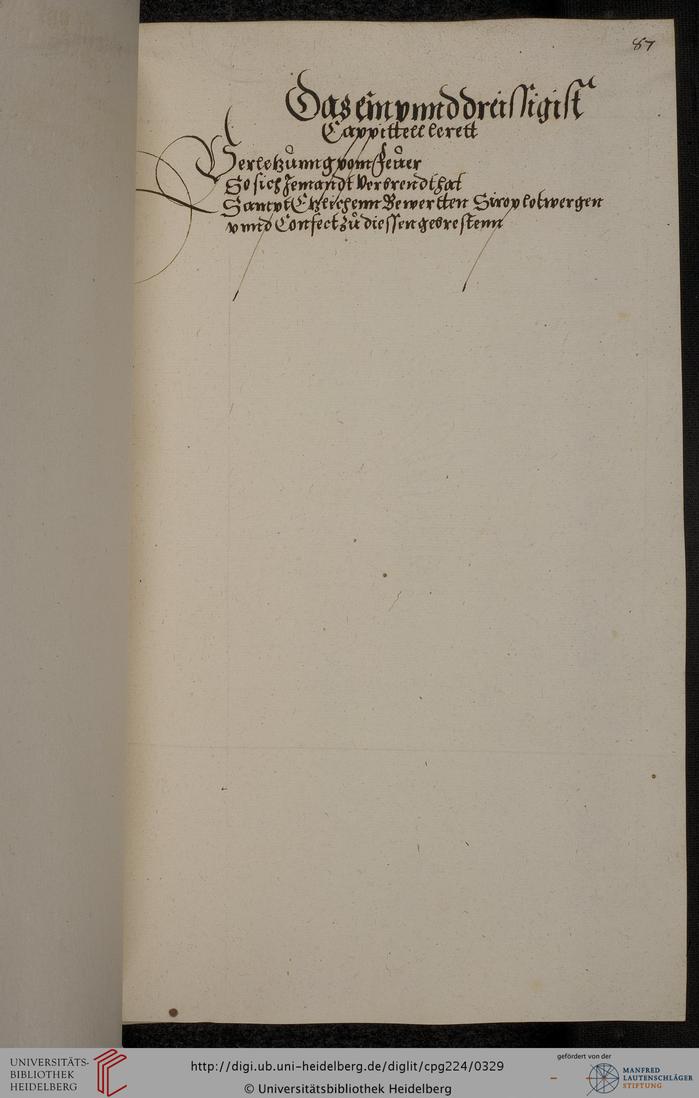 87
Das ein vnnd dreissigist
Cappittell lerett
Verletzŭnng vom Feŭer
So sich Jemandt verbrendt hat
Sampt Etzlichenn Bewertten Sirop lotwergen
vnnd Confect zŭ diessen gebrestenn
UNIVERSITÄTS-
BIBLIOTHEK
HEIDELBERG
http://digi.ub.uni-heidelberg.de/diglit/cpg224/0329
© Universitätsbibliothek Heidelberg
gefördert von der
MANFRED
LAUTENSCHLÄGER
STIFTUNG